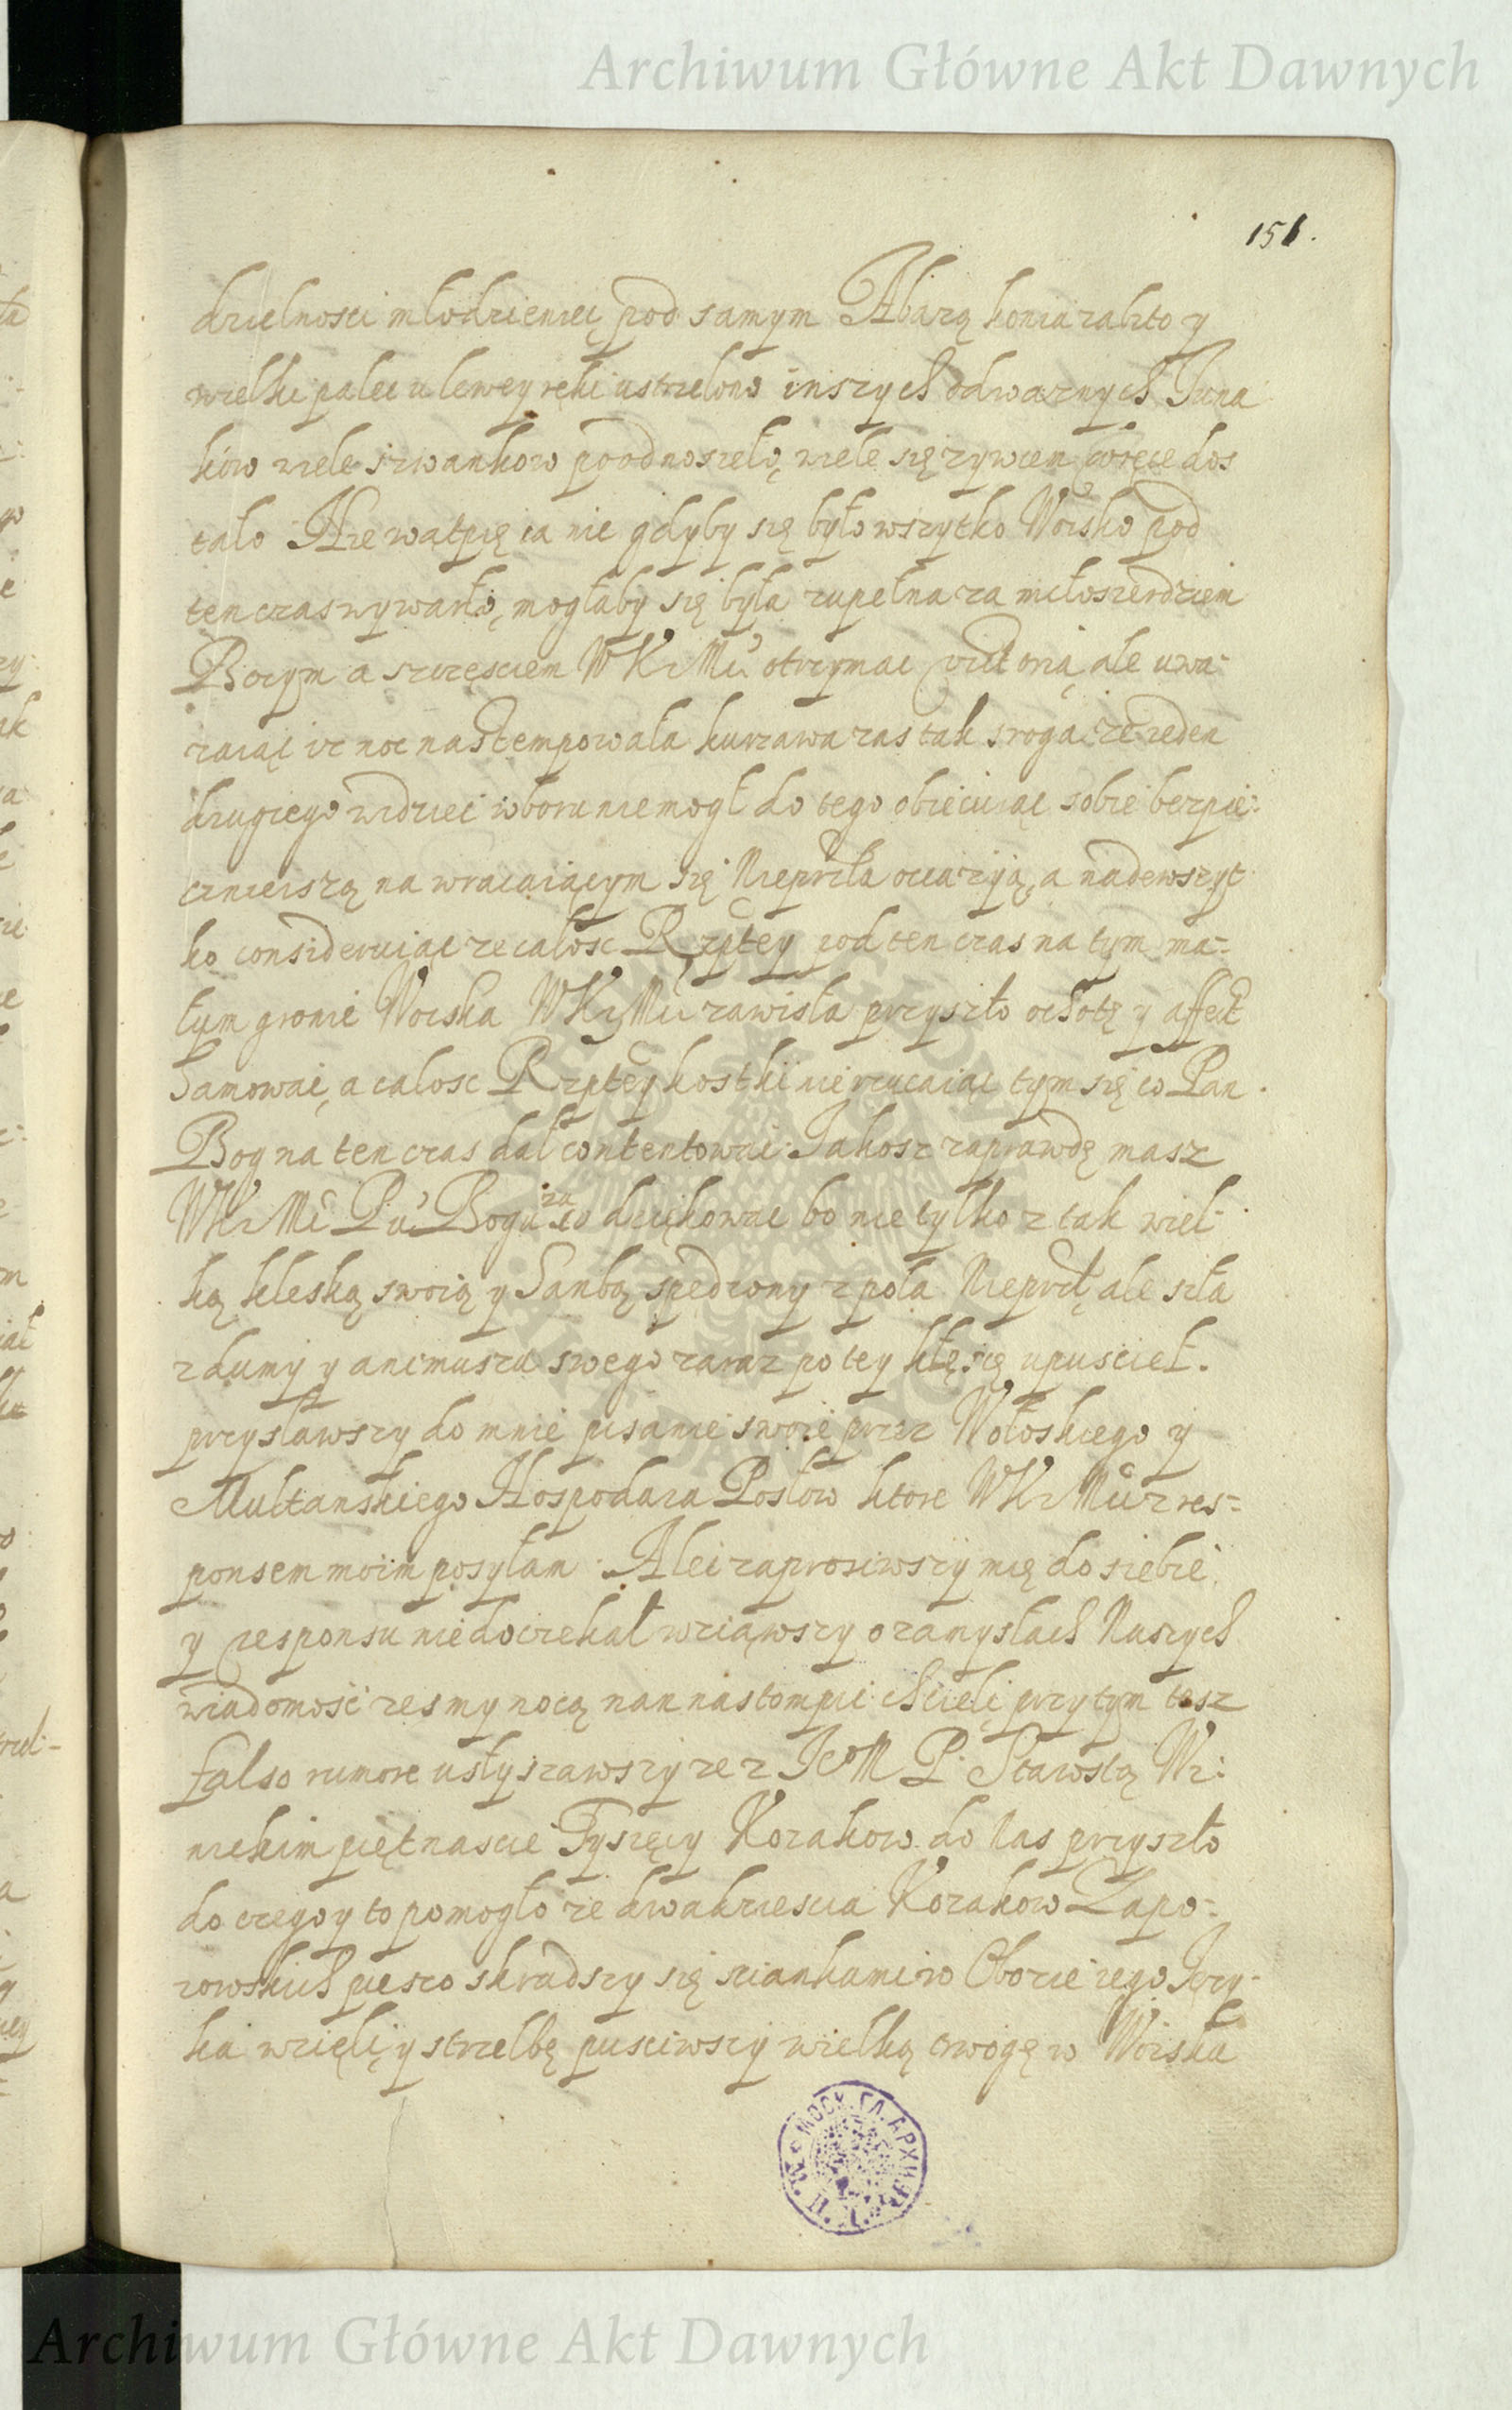 Archiwum Główne Akt Dawnych
151.
dzielnosci młodzieniec, pod samym Abazą konia zabito y
wielki palec u lewey ręki ustrzelono inszych odwaznych Juna
ków wiele szwankow poodnosieło, wiele się zywcem w ręce dos
tało Nie wątpię ia nie gdyby się było wszytko Woisko pod
ten czas wywarło, mogłaby się była zupełna za miłosierdziem
Bozym a szczęsciem WKrMci otrzymac victoria, ale uwa-
zaiąc iz noc nastempowała kurzawa zas tak sroga ze ieden
drugiego widziec w boru nie mogł do tego obiecuiąc sobie bezpie-
cznieiszą na wracaiącym się Nieprzła occazyią, a nadewszyt
ko consideruiąc ze całosc Rzptey pod ten czas na tym ma-
łym gronie Woiska WKrMci zawisła przyszło ochotę y affect
hamowac, a calosc Rzptey kostki nie rzucaiąc tym się co Pan
Bog na ten czas dał contentowac. Jakosz zaprawdę masz
WKrMc Pu Bogu za co dziękowac bo nie tylko z tak wiel-
ką klęską swoią y hanbą spędzony z pola Nieprzł, ale siła
z dumy y animuszu swego zaraz po tey klęsce upusciel.
przysławszy do mnie pisanie swoie przez Wołoskiego y
Multanskiego Hospodara Posłow ktore WKrMci z res-
ponsem moim posyłam. Ale i zaprosiwszy mię do siebie
y responsu nie doczekał wziąwszy o zamysłach Naszych
wiadomosc zesmy nocą nan nastompic chcieli, przy tym tesz
falso rumore usłyszawszy ze z JeoM P. Starostą Wi-
nickim piętnascie Tysięcy Kozakow do Nas przyszło
do czego y to pomogło ze dwadziescia Kozakow Zapo-
rowskich pieszo skradszy się sciankami w Obozie iego Jezy-
ka wzięli, y strzelbę pusciwszy wielką trwogę w Woisku
Archiwum Główne Akt Dawnych